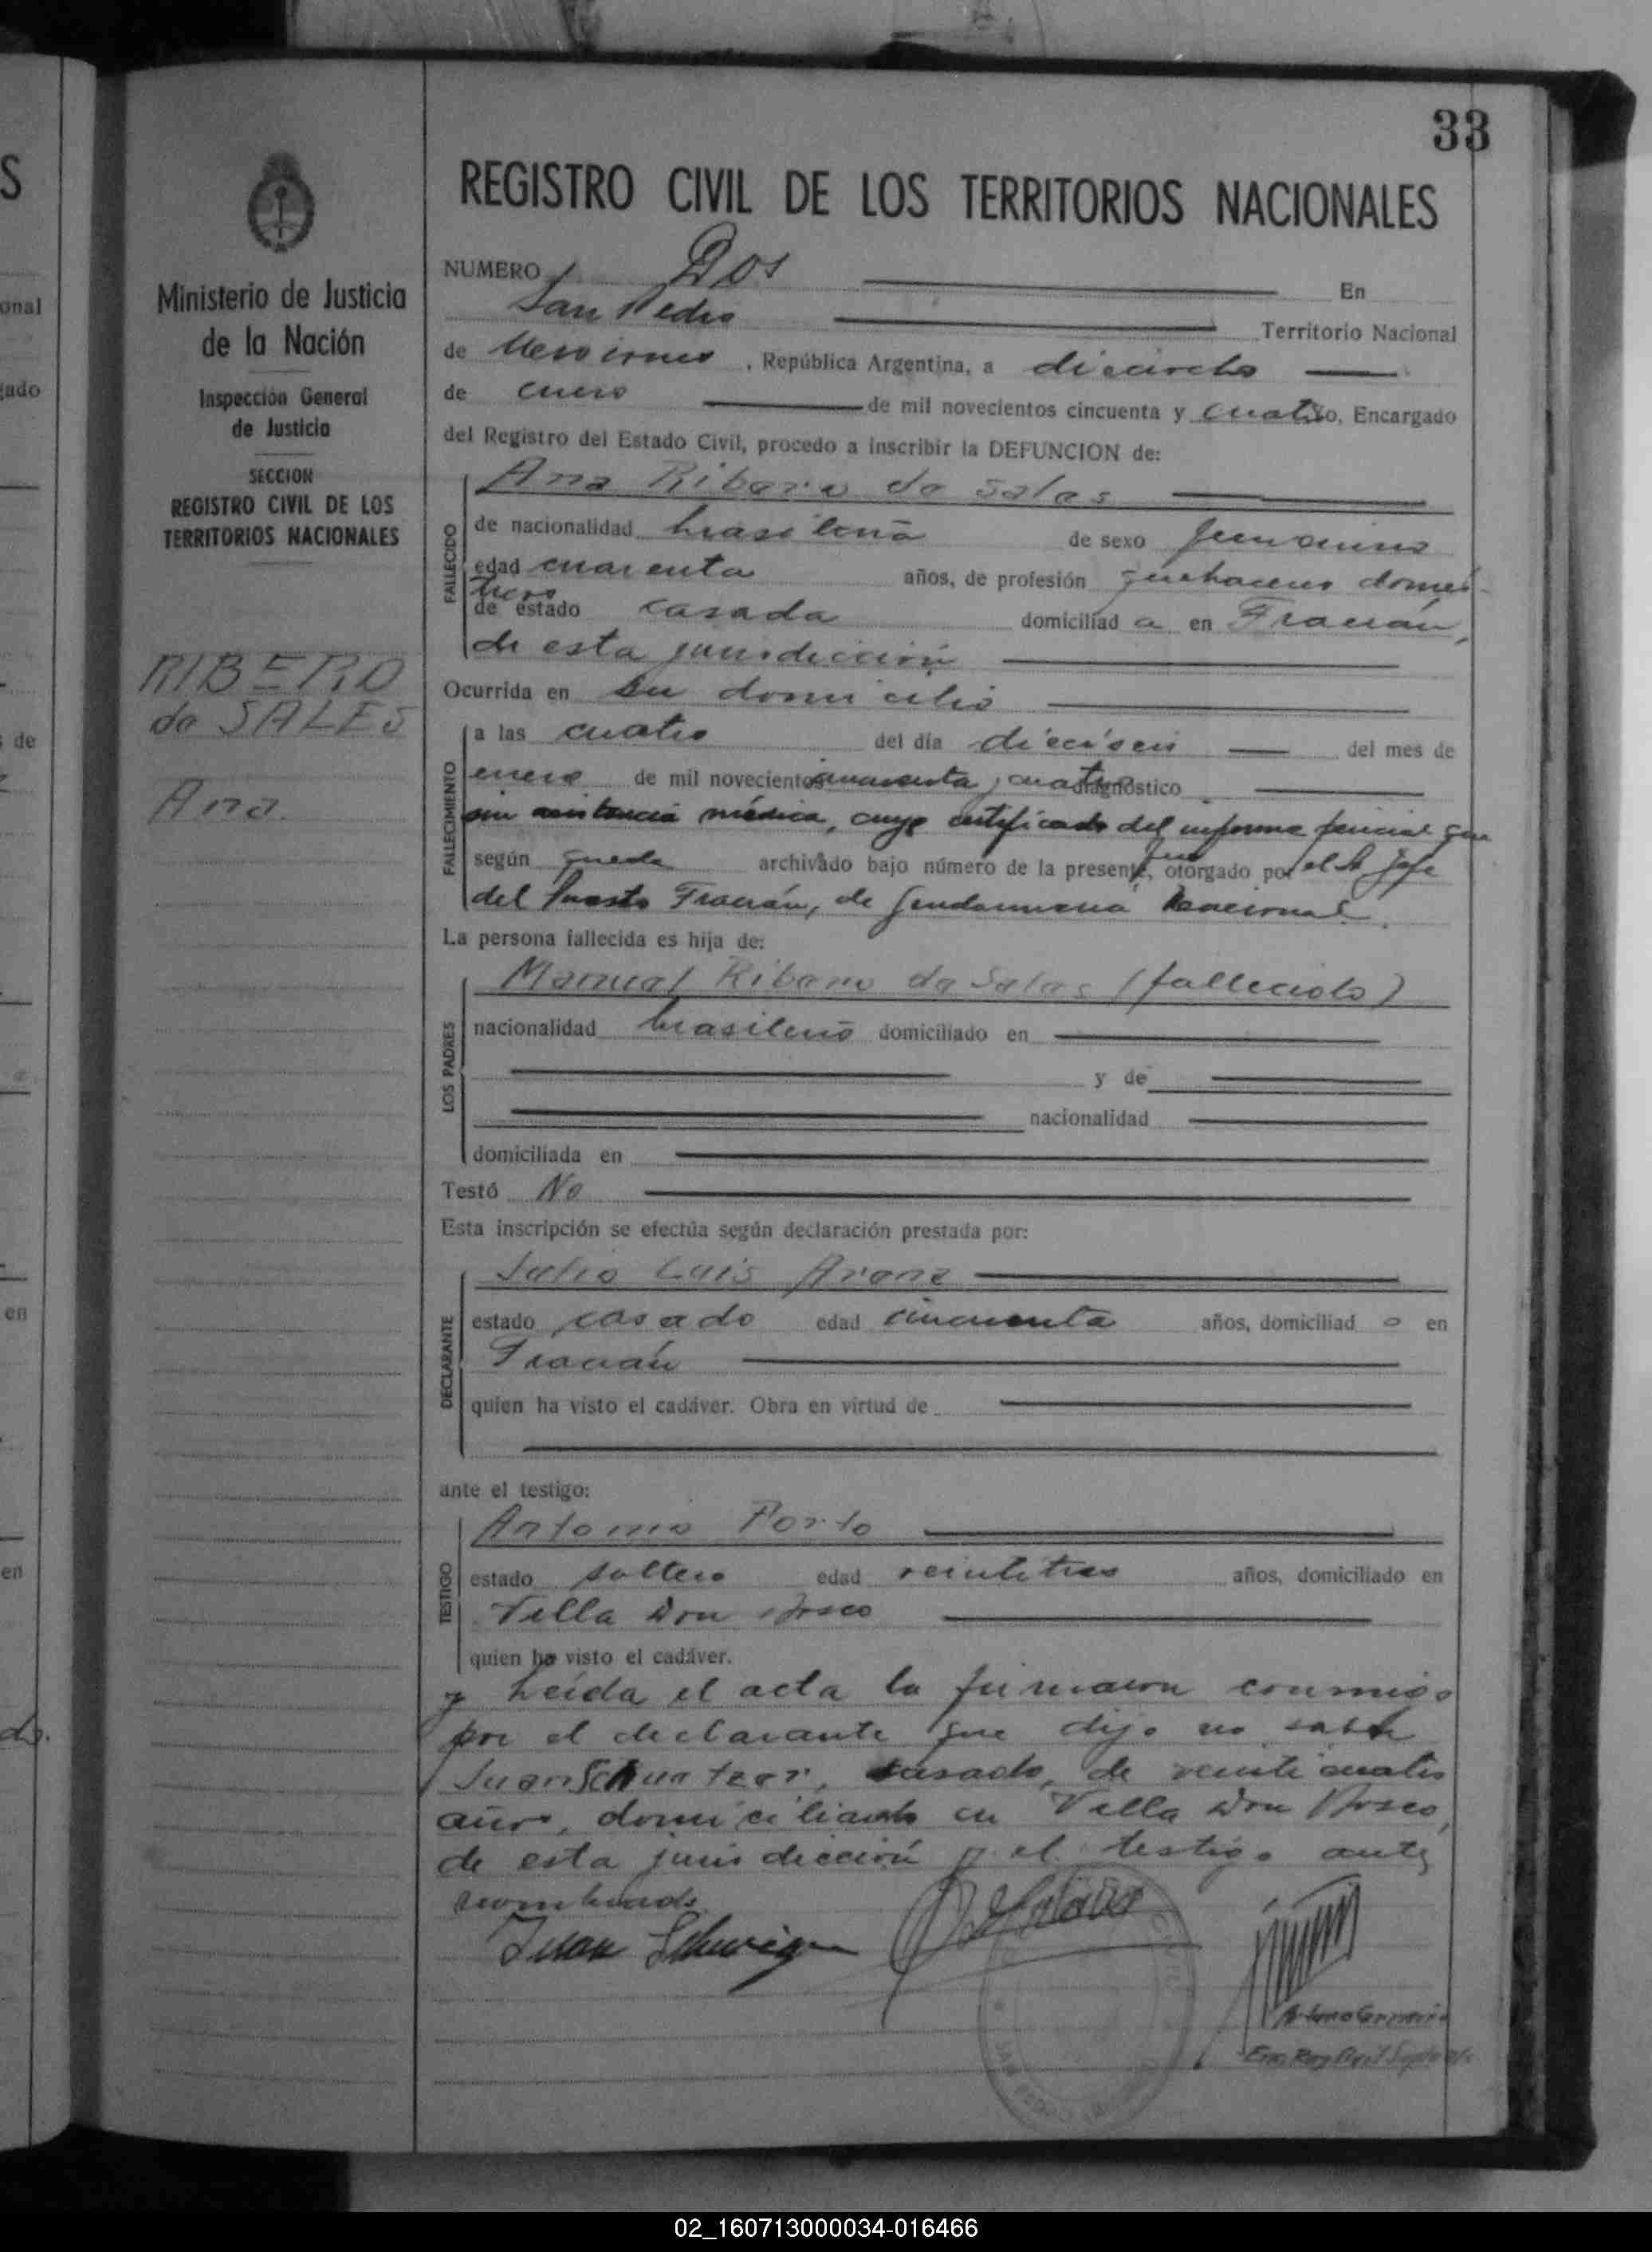 33
REGISTRO CIVIL DE LOS TERRITORIOS NACIONALES
Ministerio de Justicia
de la Nación
Inspección General
de Justicia
SECCION
REGISTRO CIVIL DE LOS
TERRITORIOS NACIONALES
RIBERO
de SALES
Ana.
NUMERO Dos En
San Pedro Territorio Nacional
de Misiones, República Argentina, a dieciocho
de enero de mil novecientos cincuenta y cuatro, Encargado
del Registro del Estado Civil, procedo a inscribir la DEFUNCION de:
Ana Ribero de Sales
FALLECIDO
de nacionalidad brasileña de sexo femenino
edad cuarenta años, de profesión quehaceres domés-
ticos
de estado casada domiciliad a en Fracrán,
de esta jurisdicción
Ocurrida en su domicilio
FALLECIMIENTO
a las cuatro del día dieciseis del mes de
enero de mil novecientos y cuatro diagnóstico
sin asistencia médica, cuyo certificado del informe pericial que
según queda archivado bajo número de la presente, fue otorgado por el Sr Jefe
del Puesto Fracrán, de Gendarmería Nacional.
La persona fallecida es hija de:
LOS PADRES
Manuel Ribero de Sales (fallecido)
nacionalidad brasileño domiciliado en
y de
nacionalidad
domiciliada en
Testó No
Esta inscripción se efectúa según declaración prestada por:
DECLARANTE
Julio Luis Arone
estado casado edad cincuenta años, domiciliad o en
Fracrán
quien ha visto el cadáver. Obra en virtud de
ante el testigo:
TESTIGO
Antonio Porto
estado soltero edad veintitres años, domiciliado en
Villa Don Bosco
quien ha visto el cadáver.
y Leída el acta la firmaron conmigo
por el declarante que dijo no saber
Juan , casado, de veinticuatro
años, domiciliado en Villa Don Bosco,
de esta jurisdicción y el testigo antes
nombrado.
Juan
02_160713000034-016466